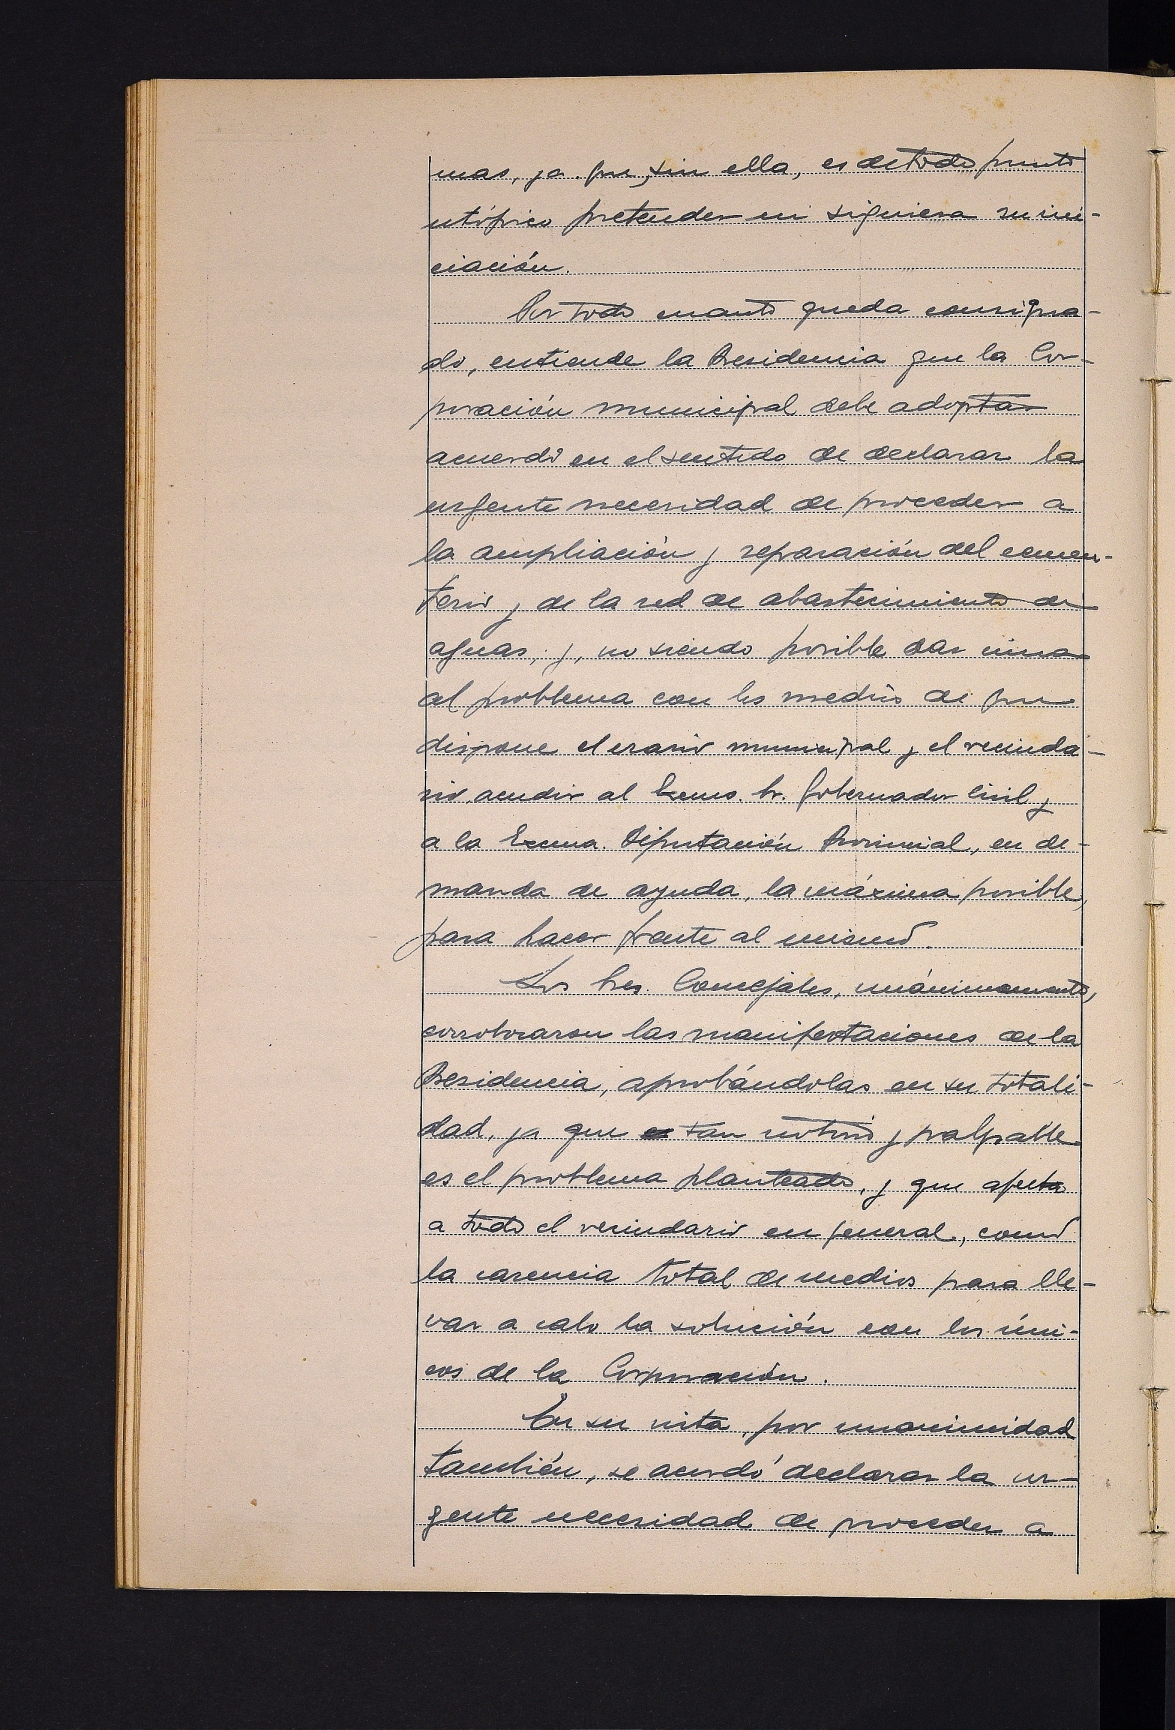 mas, ya que, sin ella, es de todo punto
utópico pretender ni siquiera su ini-
ciación.
Por todo cuanto queda consigna-
do, entiende la Presidencia que la Cor-
poración municipal debe adoptar
acuerdo en el sentido de declarar la
urgente necesidad de proceder a
la ampliación y reparación del cemen-
terio y de la red de abastecimiento de
aguas, y, no siendo posible dar cima
al problema con los medios de que
dispone el erario municipal y el vecinda-
rio, acudir al Excmo. Sr. Gobernador Civil y
a la Excma. Diputación Provincial, en de-
manda de ayuda, la máxima posible,
para hacer frente al mismo.
Los Sres. Concejales, unánimamente,
corroboraron las manifestaciones de la
Presidencia, aprobándolas en su totali-
dad, ya que tan notorio y palpable
es el problema planteado, y que afecta
a todo el vecindario en general, como
la carencia total de medios para lle-
var a cabo la solución con los úni-
cos de la Corporación.
En su vista, por unanimidad
también, se acordó declarar la ur-
gente necesidad de proceder a